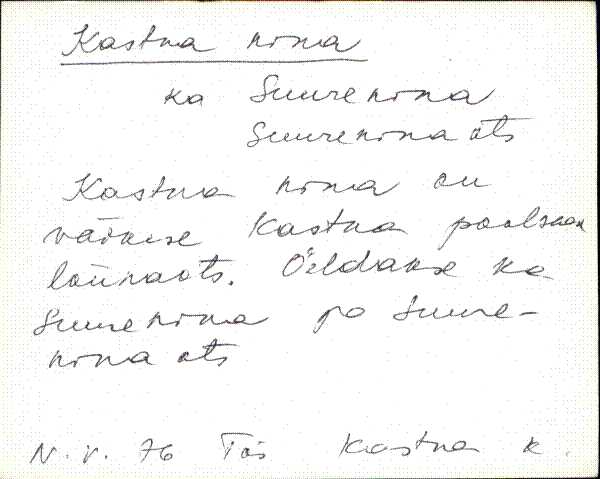 Kastna nina
ka Suurenina
Suurenina ots
Kastna nina on
väikese Kastna poolsaare
lõunaots. Öeldakse ka
Suurenina po Suure-
nina ots
N. V. 76 Tõs Kastna k.